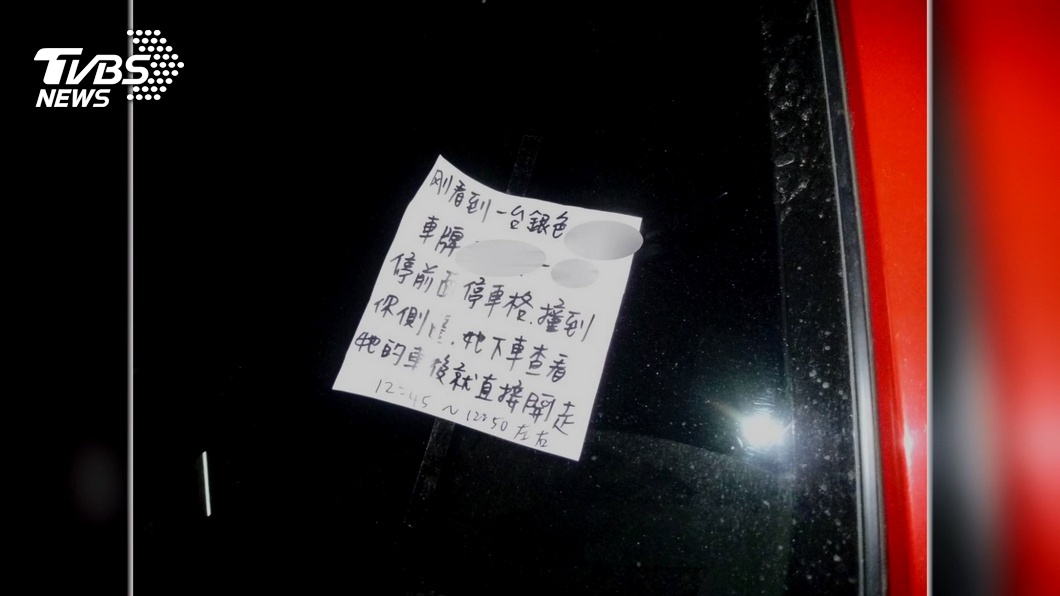 TVBS
NEWS
剛看到一台銀色
車牌 -
停前面停車格.撞到
你側.她下車查看
她的車後就直接開走
12:45 ~ 12:50 左右